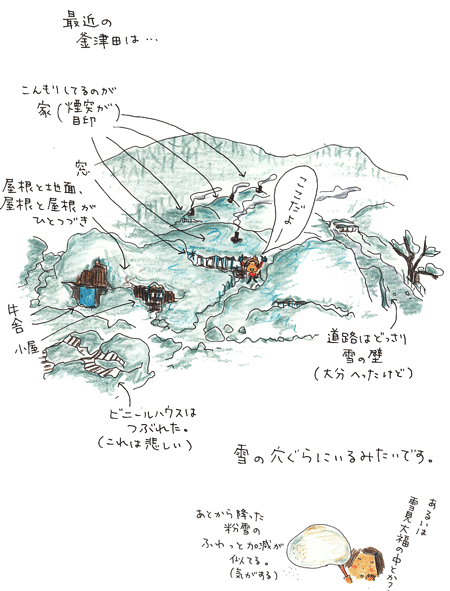 最近の
釜津田は…
こんもりしてるのが
家(煙突が
目印)
窓
屋根と地面、
屋根と屋根が
ひとつづき
ここだよー
牛舎
小屋
道路はどっさり
雪の壁
(大分へったけど)
ビニールハウスは
つぶれた。
(これは悲しい)
雪の穴ぐらにいるみたいです。
あるいは
雪見大福の中とか?
あとから降った
粉雪の
ふわっと加減が
似てる。
(気がする)